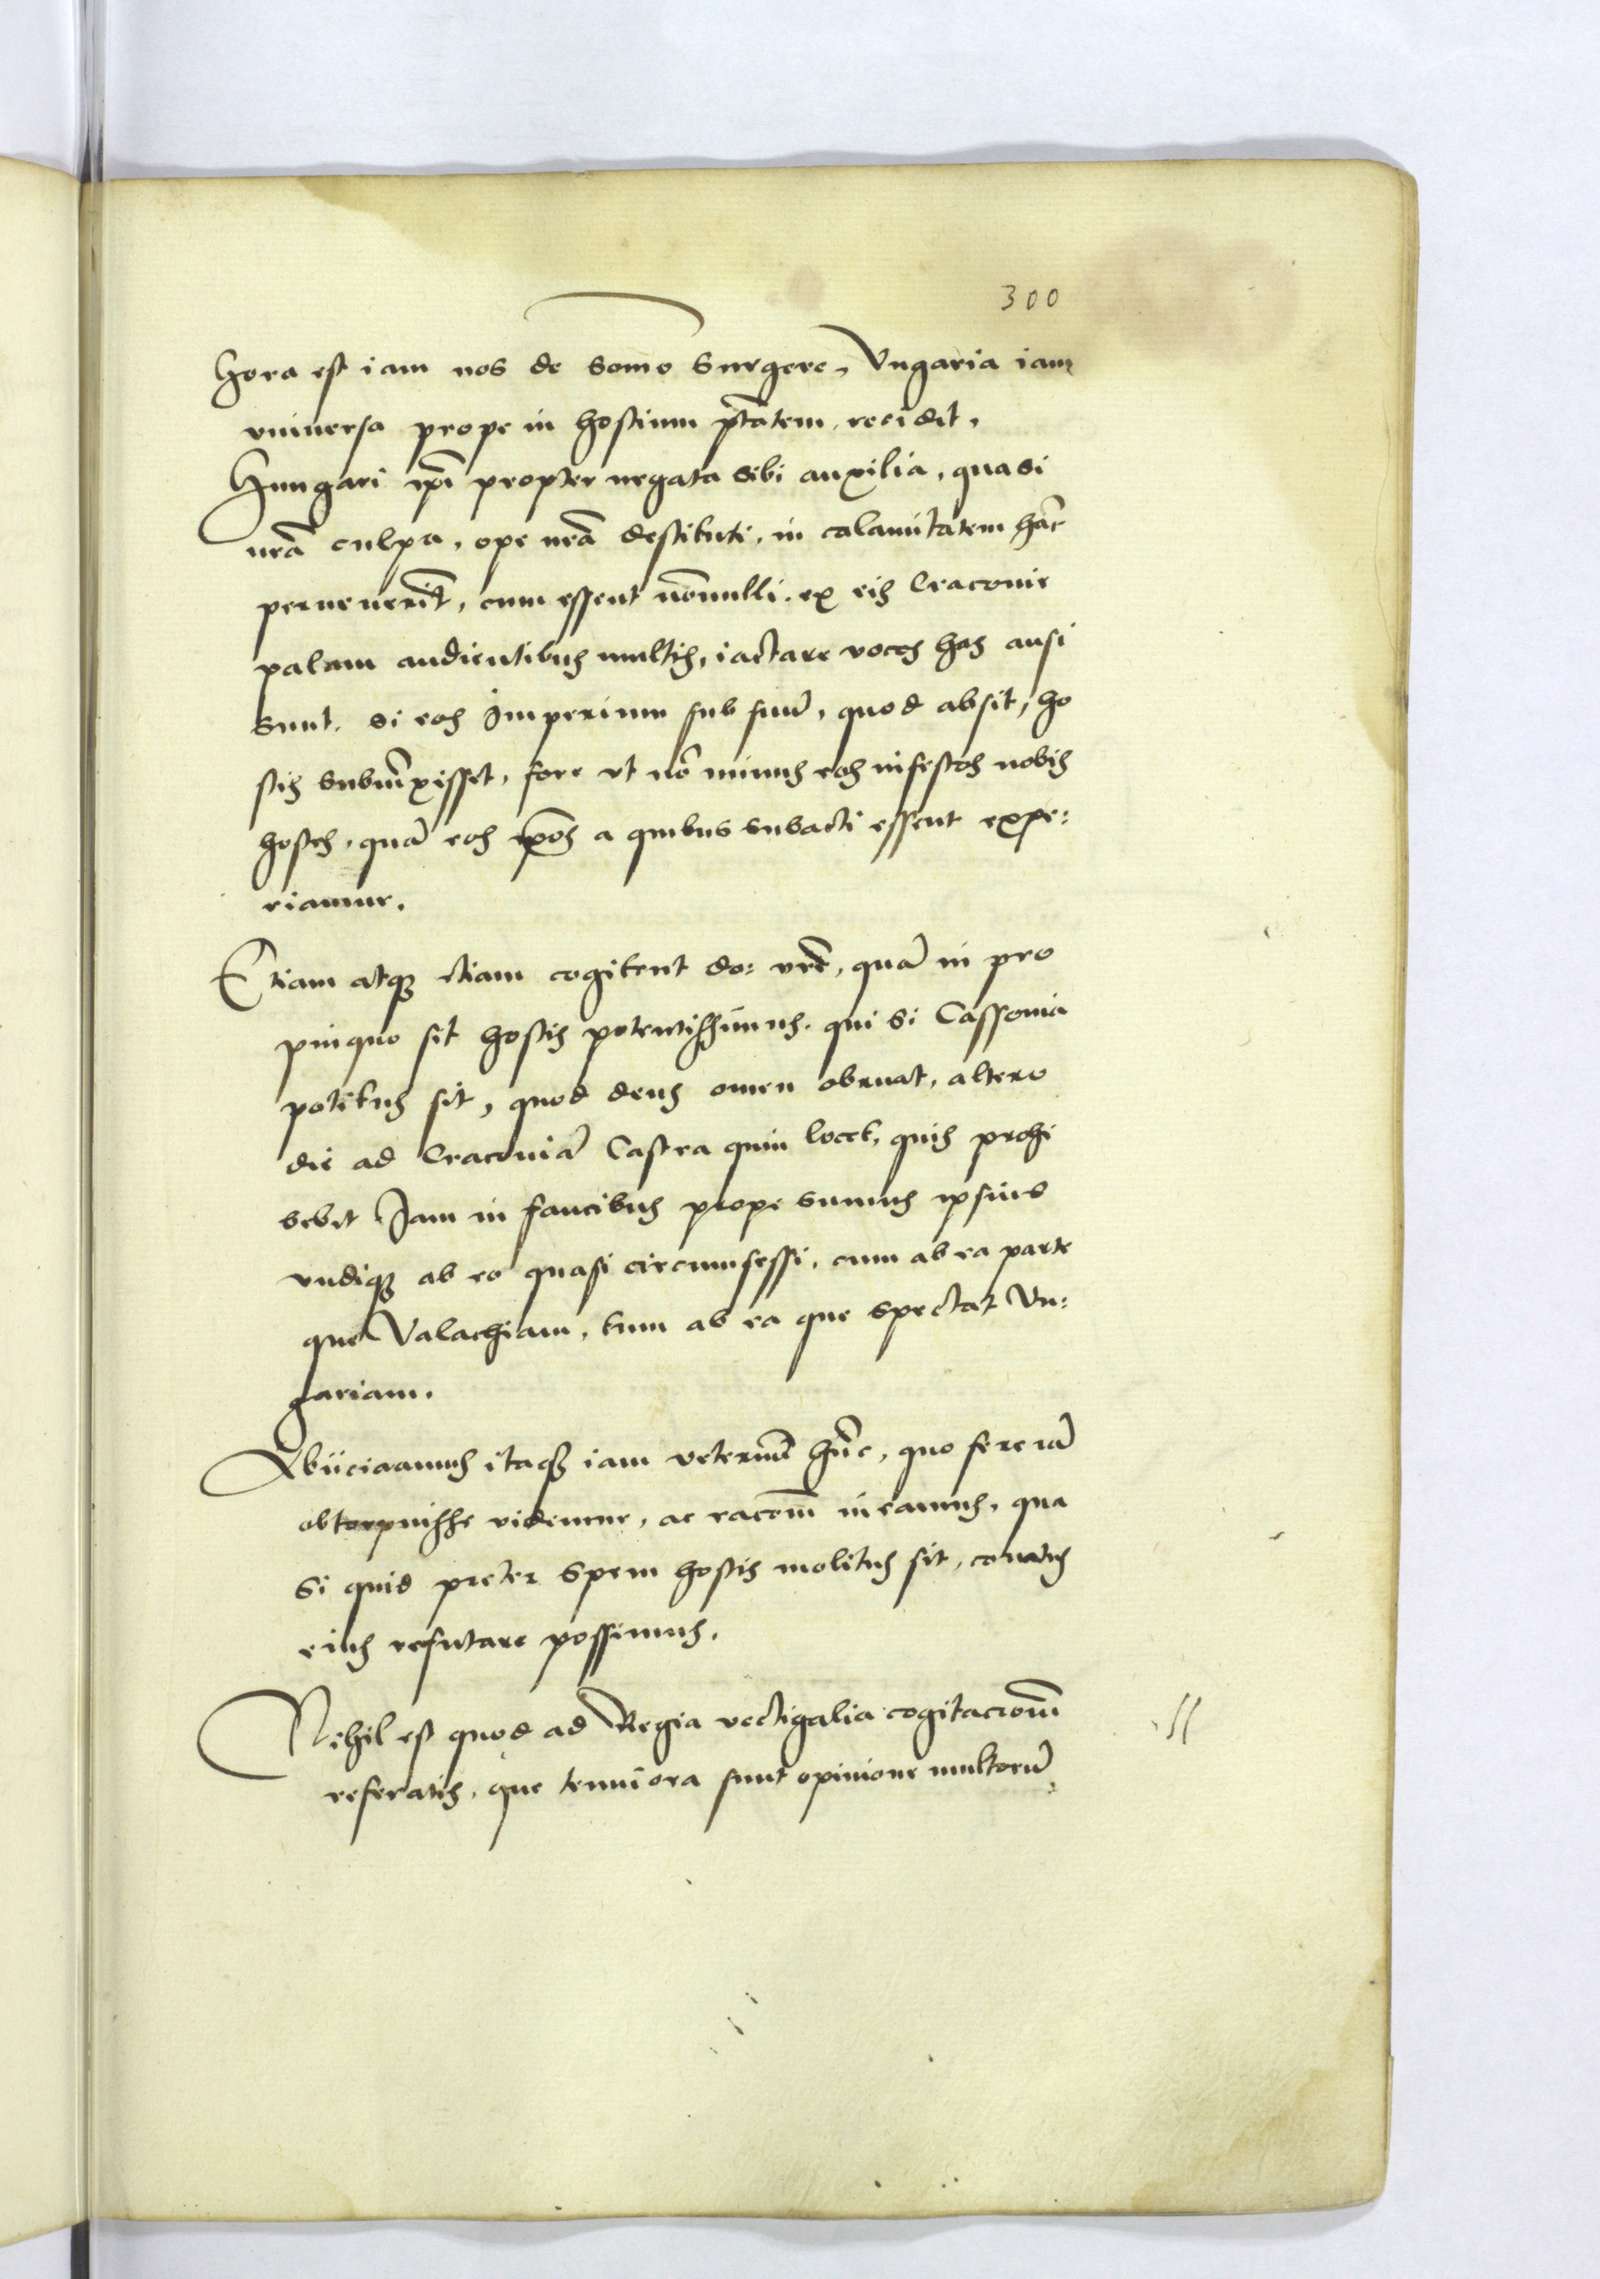 300
Hora est iam nos de som̄o surgere, Vngaria iam
vniuersa prope in hostium ptātem recidit,
Hungari ip̄i propter negata sibi auxilia, quasi
nr̄a culpa, ope nr̄a destituti, in calamitatem hāc
peruenerīt, cum essent nōnulli ex eis Cracouie
palam audientibus multis, iactare voces has ausi
sunt. si eos Imperium sub suū, quod absit, ho
stis subiūxisset, fore vt nō minus eos infestos nobis
hostes, quā eos ip̄os a quibus subacti essent expe:
riamur.
Etiam atq etiam cogitent do: vr̄e, quā in pro
pinquo sit hostis potentissimus. qui si Cassouia
potitus sit, quod deus omen obruat, altero
die ad Cracouiā Castra quin locet, quis prohi
bebit Jam in faucibus prope sumus ipsius
vndiq ab eo quasi circumsessi, cum ab ea parte
que Valachiam, tum ab ea que spectat Vn:
gariam.
Abiiciamus itaq iam veternū hūc, quo fere iā
obtorpuisse videmur, ac racōm ineamus, qua
si quid preter spem hostis molitus sit, conatus
eius refutare possimus.
Nihil est quod ad Regia vectigalia cogitacionē
referatis, que tenuiora sunt opinione multorū